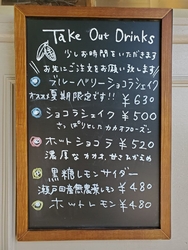 Take Out Drinks
少しお時間をいただきます
お先にご注文をお願い致します
ブルーベリーショコラシェイク
オススメ夏期限定です!! ¥630
ショコラシェイク ¥500
さっぱりとしたカカオフローズン
ホットショコラ ¥520
濃厚なカカオ、甘さひかえめ
黒糖レモンサイダー
瀬戸田産無農薬レモン ¥480
ホットレモン ¥480